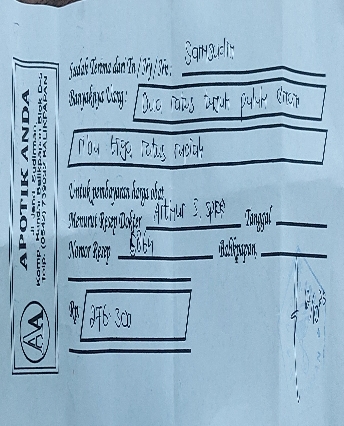 APOTIK ANDA
Jl. Jend. Sudirman
Komp. Kendal Balikpapan Blok D.
Telp. (0542) BALIKPAPAN
AA
Sudah Terima dari Tn / Ny / Nn : Samsudin
Banyaknya Uang : Dua ratus tujuh puluh enam
ribu tiga ratus rupiah
Untuk pembayaran harga obat
Menurut Resep Dokter Arthur S. Spec Tanggal
Nomor Resep Balikpapan,
Rp. 276.300